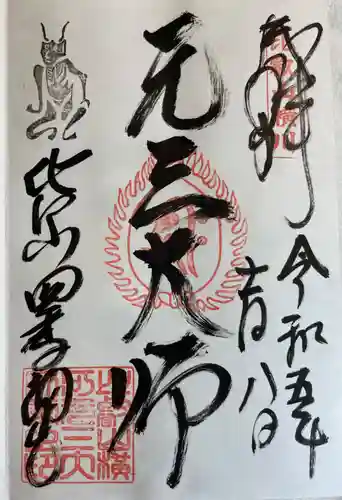 奉拝
令和五年
十一月八日
元三大師
比叡山
四季講堂